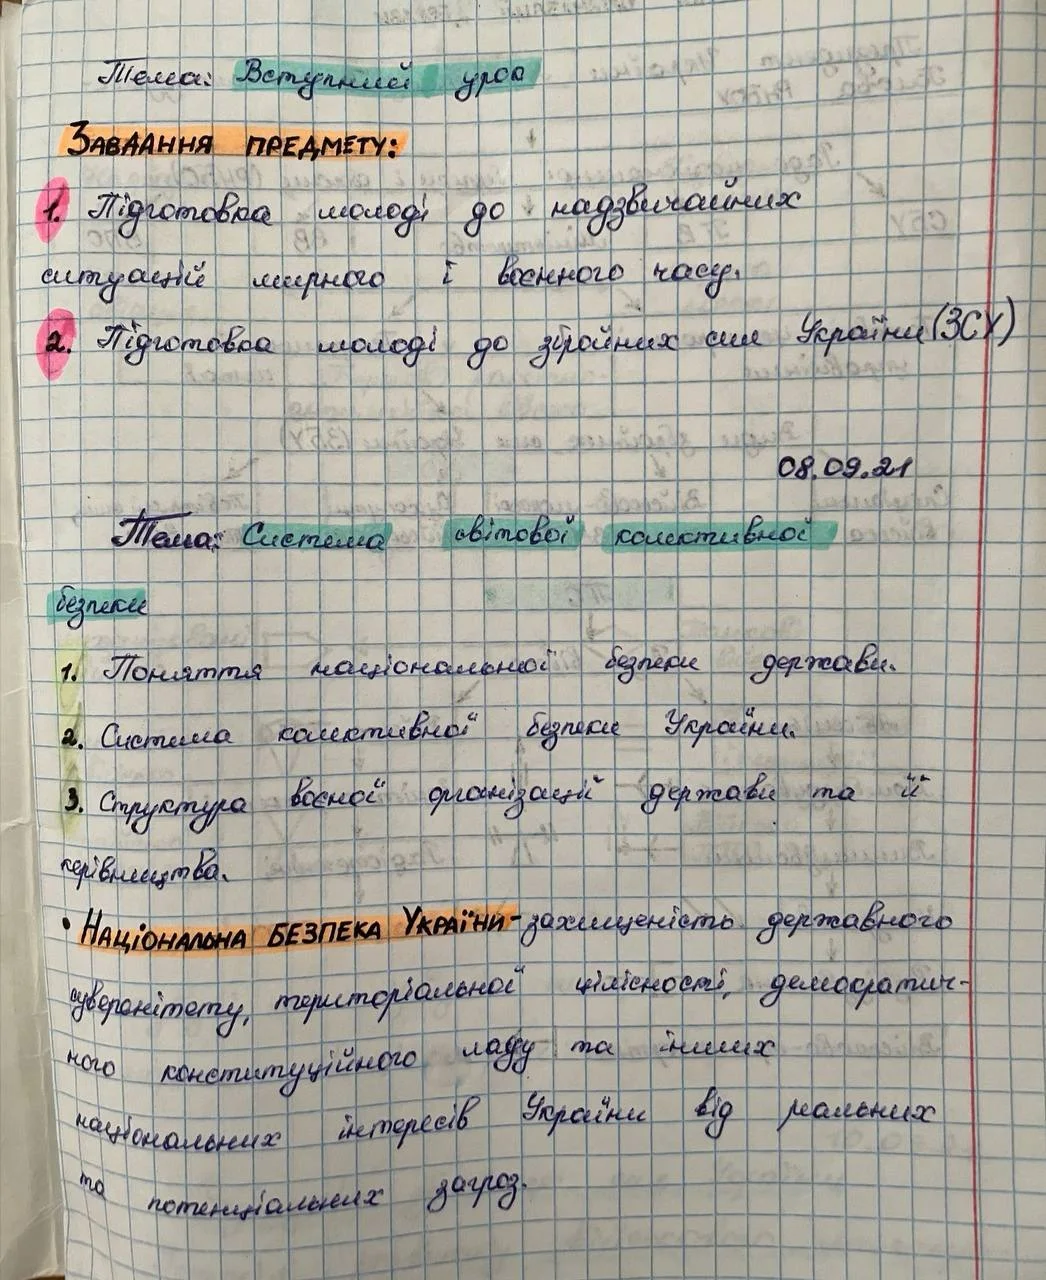 Тема: Вступний урок
ЗАВДАННЯ ПРЕДМЕТУ:
1. Підготовка молоді до надзвичайних
ситуацій мирного і воєнного часу.
2. Підготовка молоді до збройних сил України (ЗСУ)
08.09.21
Тема: Система світової колективної
безпеки
1. Поняття національної безпеки держави.
2. Система колективної безпеки України.
3. Структура воєної організації держави та її
керівництва.
• НАЦІОНАЛЬНА БЕЗПЕКА УКРАЇНИ - захищеність державного
суверенітету, територіальної цілісності, демократич-
ного конституційного ладу та інших
національних інтересів України від реальних
та потенціальних загроз.